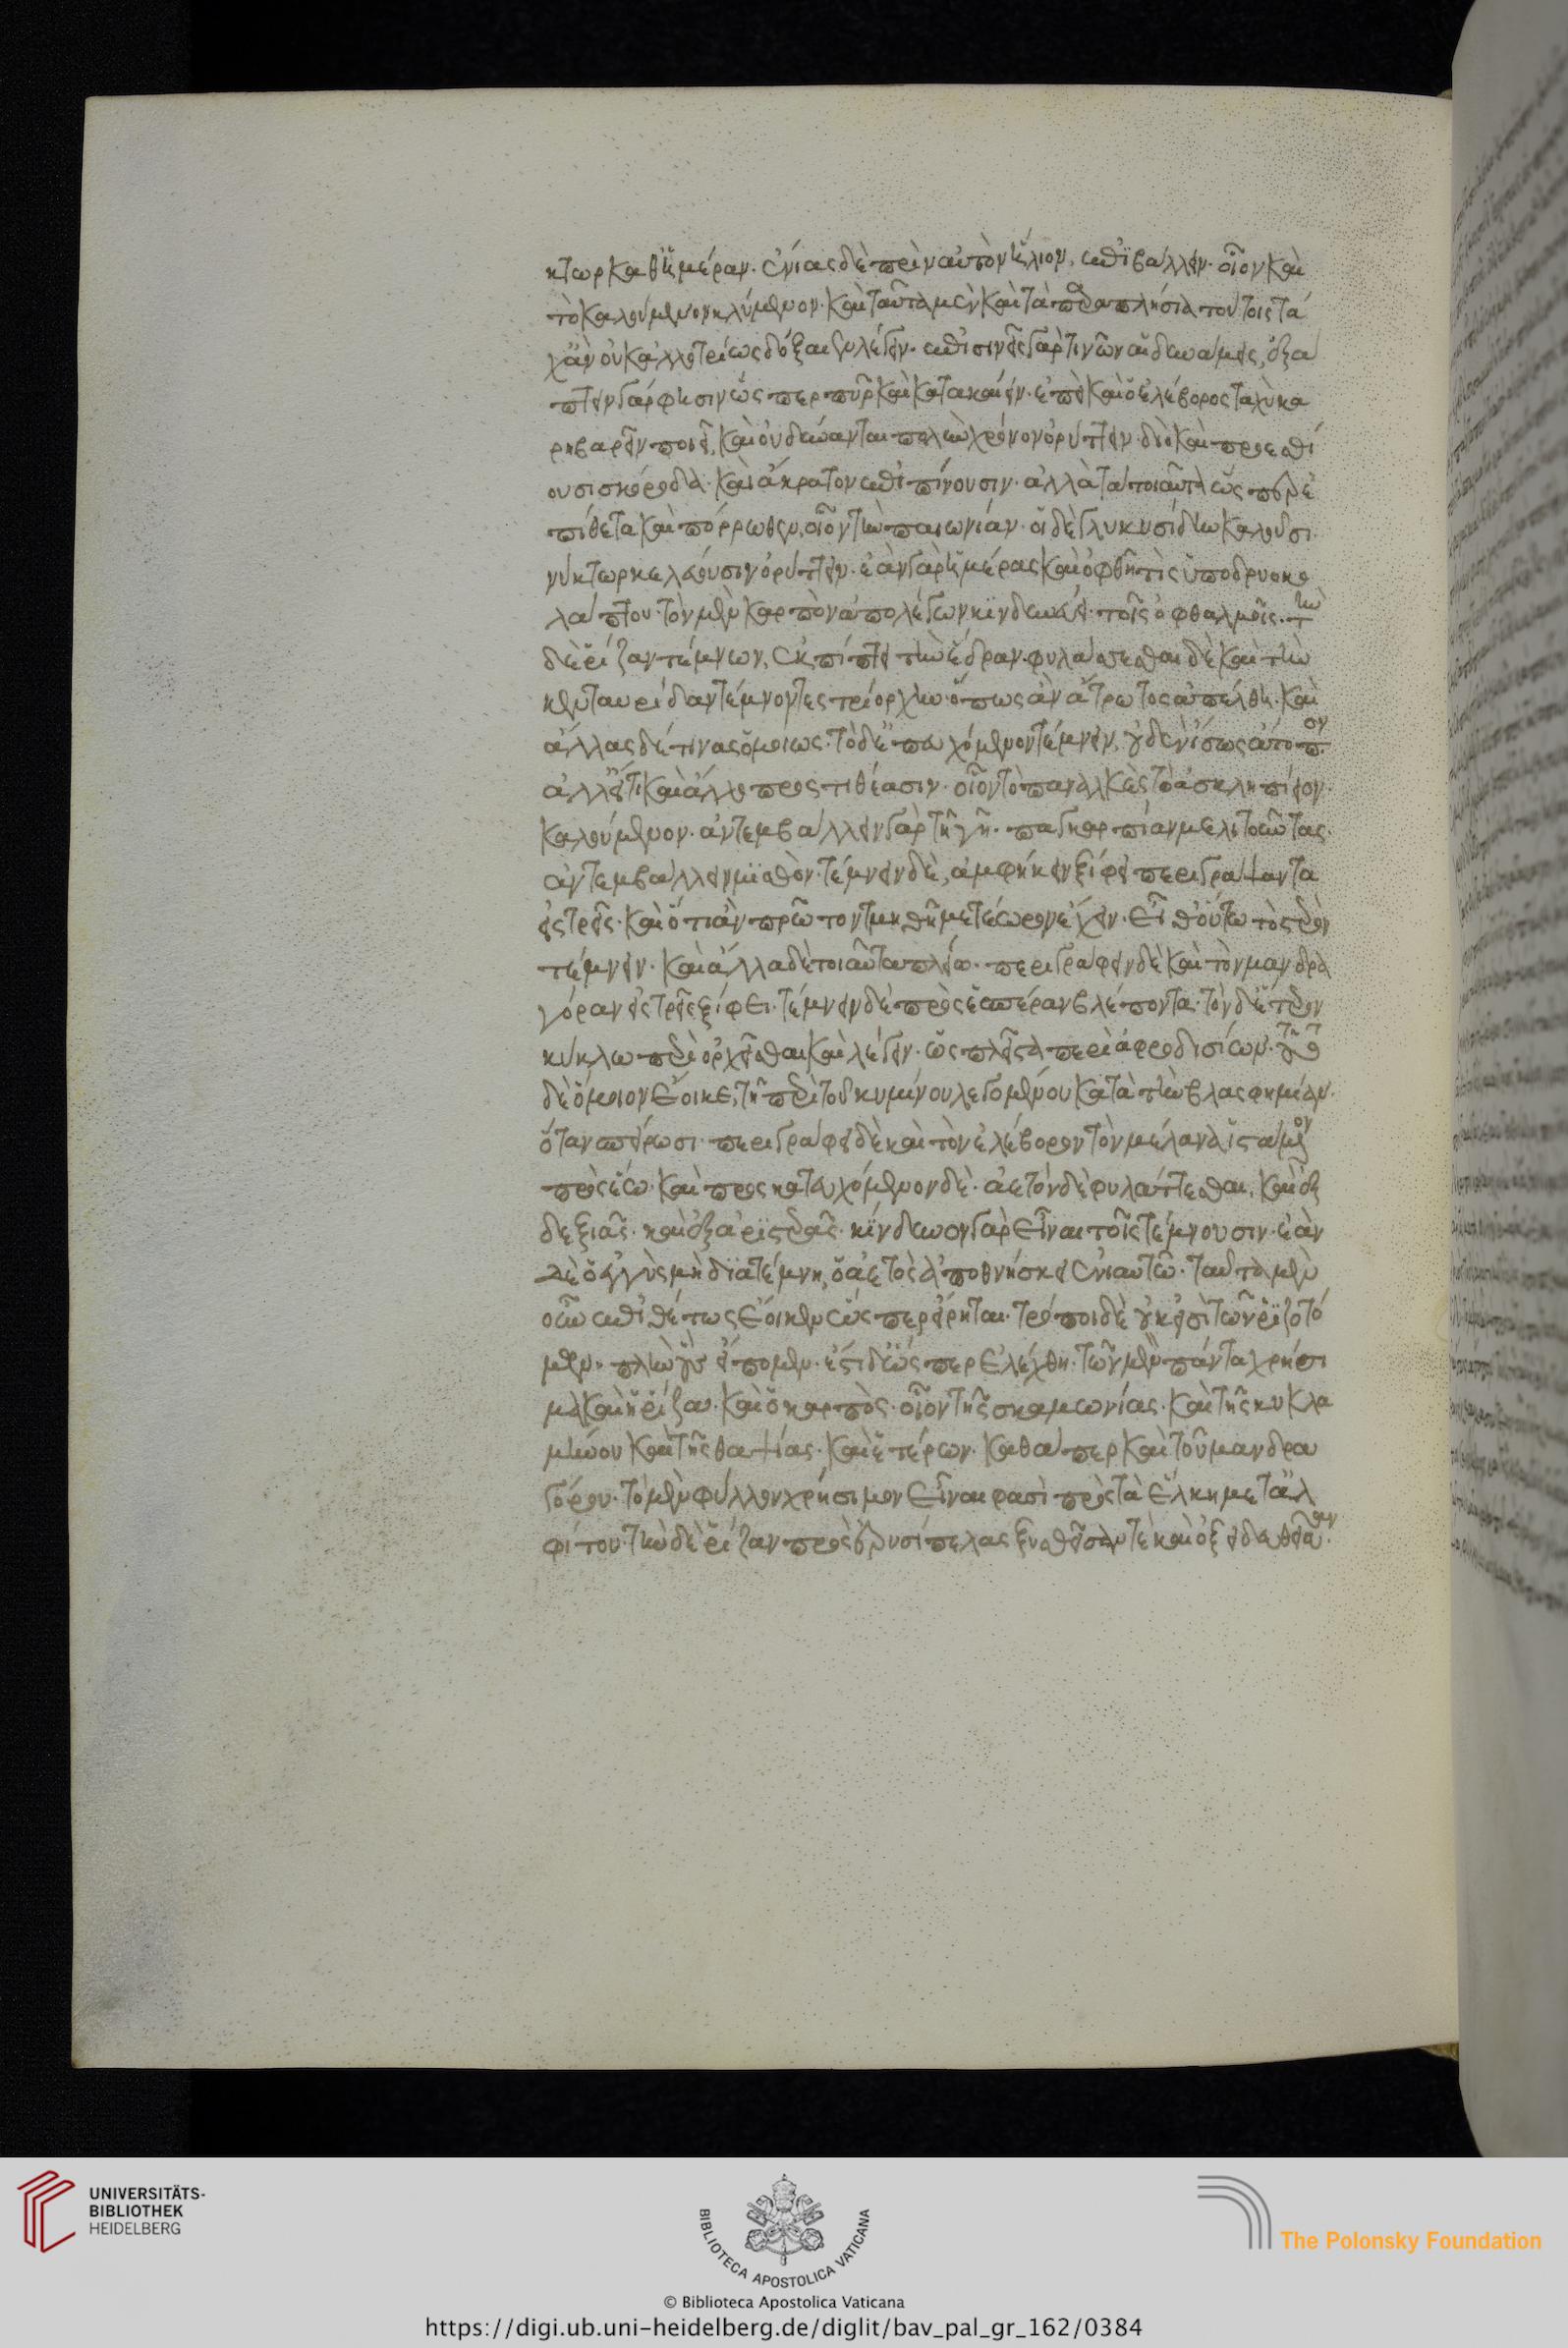 κτωρ καθ᾽ ἡμέραν. ἐνίας δὲ πρὶν αὐτὸν ἥλιον, ἐπιβάλλειν. οἷον καὶ
τὸ καλούμενον κλύμενον. καὶ ταῦτα μὲν καὶ τὰ παραπλήσια τούτοις τά
χ᾽ ἂν οὐκ ἀλλοτρίως δόξαιεν λέγειν. ἐπισινεῖς γάρ τινων αἱ δυνάμεις, ἐξά
πτειν γάρ φησιν ὥσπερ πῦρ καὶ κατακαίειν. ἐπεὶ καὶ ὁ ἐλέβορος ταχὺ κα
ρηβαρεῖν ποιεῖ, καὶ οὐ δύνανται πολὺν χρόνον ὀρύττειν. διὸ καὶ προεσθί
ουσι σκόροδα. καὶ ἄκρατον ἐπιπίνουσιν. ἀλλὰ τὰ τοιαῦτα ὥσπερ ἐ
πίθετα καὶ πόρρωθεν, οἷον τὴν παιωνίαν. οἱ δὲ γλυκυσίδην καλοῦσι.
νύκτωρ κελεύουσιν ὀρύττειν. ἐὰν γὰρ ἡμέρας καὶ ὀφθῇ τις ὑπὸ δρυοκο
λάπτου. τὸν μὲν καρπὸν ἀπολέγων κινδυνεύει τοῖς ὀφθαλμοῖς. τὴν
δὲ ῥίζαν τέμνων, ἐκπίπτει τὴν ἕδραν. φυλάττεσθαι δὲ καὶ τὴν
κενταυρίδα τέμνοντες τριόρχην. ὅπως ἂν ἄτρωτος ἀπέλθῃ. καὶ
ἄλλας δέ τινας ὁμοίως. τὸ δ᾽ ἐπευχόμενον τέμνειν, οὐδὲν ἴσως ἄτοπον
ἀλλ᾽ εἴ τι καὶ ἄλλο προστιθέασιν. οἷον τὸ πανακὲς τὸ ἀσκληπίειον
καλούμενον. ἀντεμβάλλειν γὰρ τῇ γῇ. παγκαρπίαν μελιτοῦτας.
ἀντεμβάλλειν μισθόν. τέμνειν δὲ, ἀμφήκει ξίφει περιγράψαντα
εἰς τρεῖς. καὶ ὅτι ἂν πρῶτον τμηθῇ μετέωρον ἔχειν. εἶθ᾽ οὕτω τὸ ἕτερον
τέμνειν. καὶ ἄλλα δὲ τοιαῦτα πλείω. περιγράφειν δὲ καὶ τὸν μανδρα
γόραν εἰς τρεῖς ξίφει. τέμνειν δὲ πρὸς ἑσπέραν βλέποντα. τὸν δ᾽ ἕτερον
κύκλω περιορχεῖσθαι καὶ λέγειν. ὡς πλεῖστα περὶ ἀφροδισίων. τοῦτο
δὲ ὅμοιον ἔοικε, τῇ περὶ τοῦ κυμίνου λεγομένου κατὰ τὴν βλασφημίαν.
ὅταν σπείρωσι. περιγράφει δὲ καὶ τὸν ἐλέβορον τὸν μέλανα ἱστάμενον
πρὸς ἕω. καὶ προσκατευχόμενον δὲ. ἀετὸν δὲ φυλάττεσθαι, καὶ ἐκ
δεξιᾶς. καὶ ἐξ ἀριστερᾶς. κίνδυνον γὰρ εἶναι τοῖς τέμνουσιν. ἐὰν
δὲ ὁ ἐγγὺς μὴ διατέμνῃ, ὁ ἀετὸς ἀποθνήσκει ἐνιαυτῷ. ταῦτα μὲν
οὖν ἐπιθέτως ἔοικεν ὥσπερ εἴρηται. τρόποι δὲ οὐκ εἰσὶ τῶν ῥιζοτό
μεν. πλὴν οὓς εἴπομεν. ἔστι δ᾽ ὥσπερ ἐλέχθη. τῶν μὲν πάντα χρήσι
μα καὶ ἡ ῥίζα. καὶ ὁ καρπὸς. οἷον τῆς σκαμωνίας. καὶ τῆς κυκλα
μίνου καὶ τῆς θαψίας. καὶ ἑτέρων. καθάπερ καὶ τοῦ μανδρα
γόρου. τὸ μὲν φύλλον χρήσιμον εἶναι φασὶ πρὸς τὰ ἕλκη μετ᾽ ἀλ
φίτου. τὴν δὲ ῥίζαν πρὸς ἐρυσίπελας ξυσθεῖσάν τε καὶ ὄξει δευθεῖσαν.
UNIVERSITÄTS-
BIBLIOTHEK
HEIDELBERG
BIBLIOTECA APOSTOLICA VATICANA
The Polonsky Foundation
© Biblioteca Apostolica Vaticana
https://digi.ub.uni-heidelberg.de/diglit/bav_pal_gr_162/0384